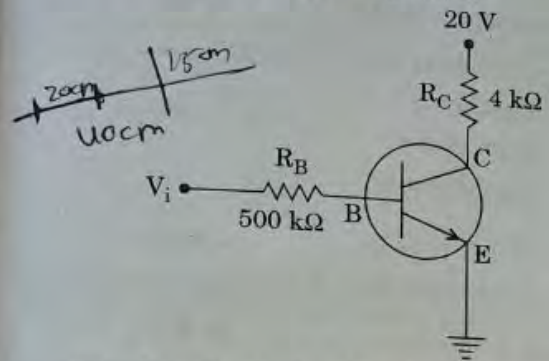 20 V
15cm
20cm
40cm
R_C 4 kΩ
C
R_B
V_i
500 kΩ
B
E